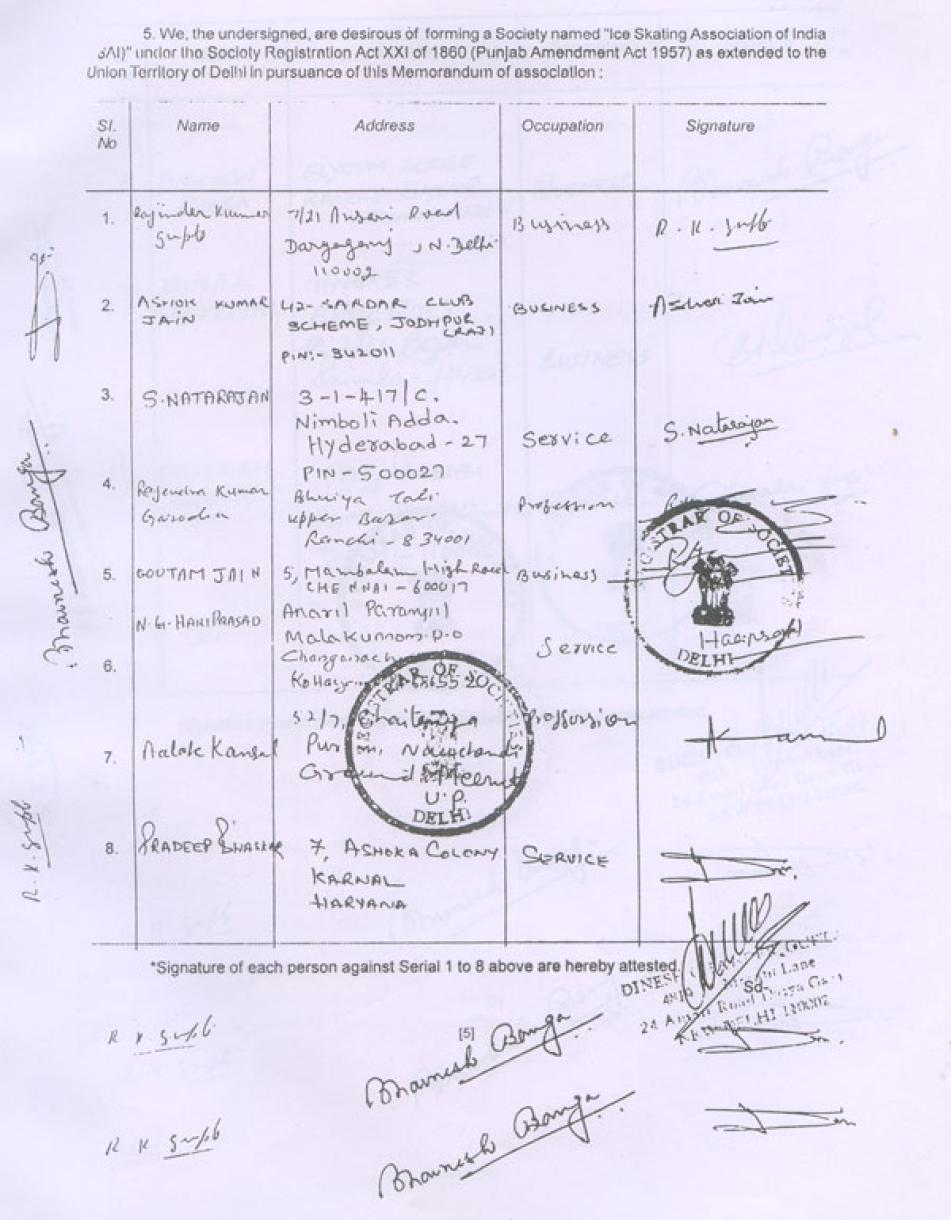 5. We, the undersigned, are desirous of forming a Society named "Ice Skating Association of India
SAI)" under the Society Registration Act XXI of 1860 (Punjab Amendment Act 1957) as extended to the
Union Territory of Delhi in pursuance of this Memorandum of association :
Sl. No Name Address Occupation Signature
1. Rajinder Kumar Gupta 7/21 Ansari Road Business R. K. Gupta
Daryaganj, N. Delhi
110002
2. ASHOK KUMAR JAIN 42- SARDAR CLUB BUSINESS Ashok Jain
SCHEME, JODHPUR
(RAJ)
PIN:- 342011
3. S. NATARAJAN 3-1-417/C. Service S. Natarajan
Nimboli Adda.
Hyderabad - 27
PIN - 500027
4. Rajendra Kumar Garodia Bhuiya Toli Profession
Upper Bazar
Ranchi - 834001
5. GOUTAM JAIN 5, Mambalam High Road Business
CHENNAI - 600017
6. N. G. HARIPRASAD Anaril Parampil Service Hariprasad
Malakunnam P.O
7. Aalok Kansal 52/7, Chaitanya Profession Kansal
Puram, Nauchandi
Ground Meerut
U.P.
REGISTRAR OF SOCIETIES
DELHI
REGISTRAR OF SOCIETIES
DELHI
8. PRADEEP BHASKAR 7, ASHOKA COLONY SERVICE
KARNAL
HARYANA
*Signature of each person against Serial 1 to 8 above are hereby attested.
DINESH
Sd-
Lane
24 Ansari Road Darya Ganj
NEW DELHI 110002
[5]
R K Gupta
Bhavnesh Banga
R K Gupta
Bhavnesh Banga
Bhavnesh Banga
R. K. Gupta